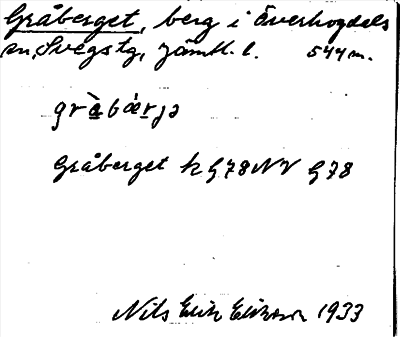 Gråberget, berg i Överhogdals
sn, Svegs tg, Jämtl. l. 544 m.
gràbæ̀rjə
Gråberget k G 78 NV G 78
Nils Erik Eliksson 1933